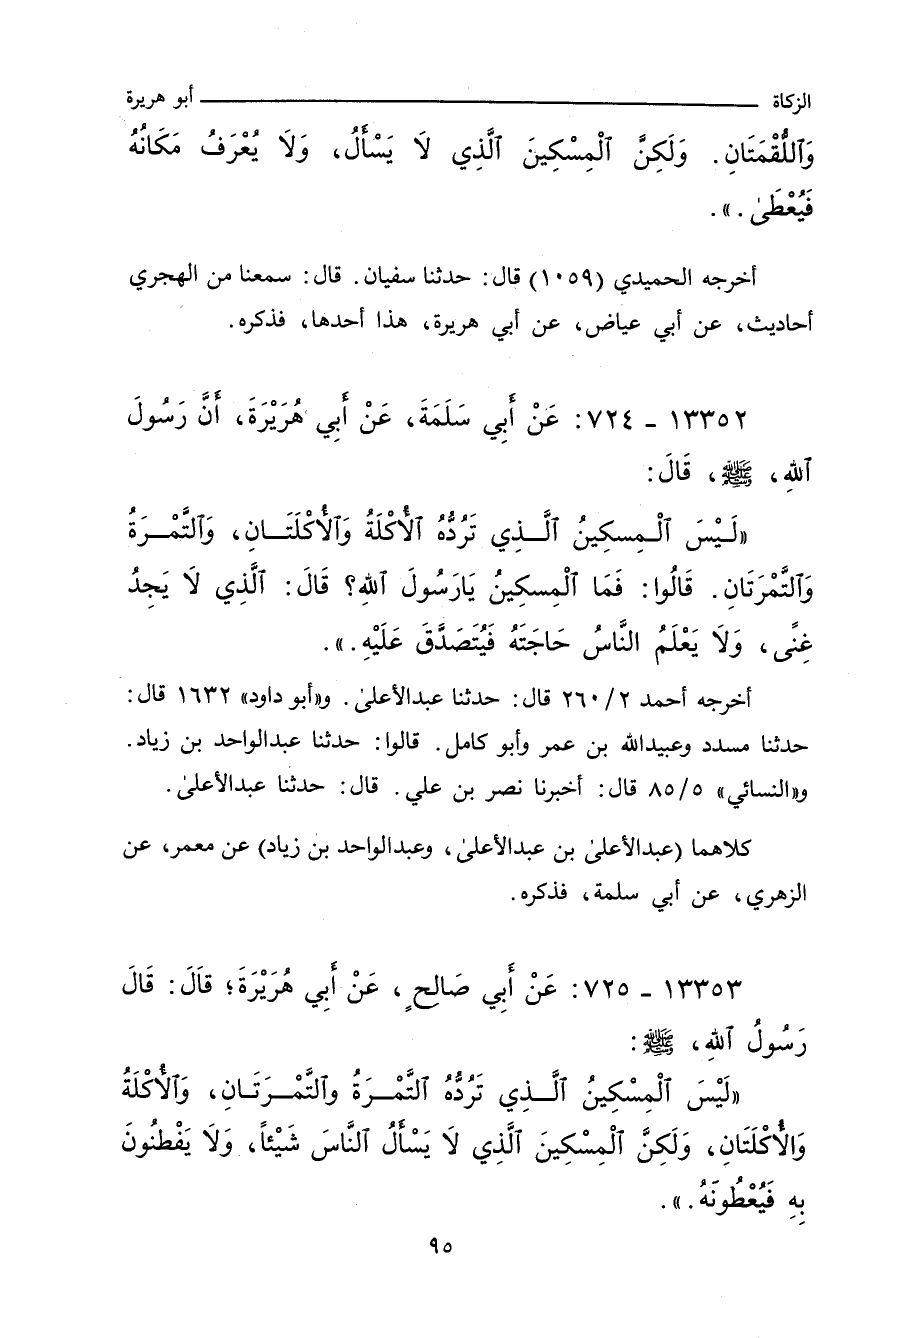 الزكاة ــــــــــــــــ أبو هريرة
وَٱللُّقْمَتَانِ. وَلَكِنَّ ٱلْمِسْكِينَ ٱلَّذِي لَا يَسْأَلُ، وَلَا يُعْرَفُ مَكَانُهُ
فَيُعْطَىٰ.».
أخرجه الحميدي (١٠٥٩) قال: حدثنا سفيان. قال: سمعنا من الهجري
أحاديث، عن أبي عياض، عن أبي هريرة، هذا أحدها، فذكره.
١٣٣٥٢ - ٧٢٤: عَنْ أَبِي سَلَمَةَ، عَنْ أَبِي هُرَيْرَةَ، أَنَّ رَسُولَ
ٱللهِ، ﷺ، قَالَ:
«لَـيْسَ ٱلْـمِسكِينُ ٱلَّـــذِي تَرُدُّهُ ٱلْأُكْلَةُ وَٱلْأُكْلَتَـــانِ، وَٱلتَّمْــرَةُ
وَٱلتَّمْرَتَانِ. قَالُوا: فَمَا ٱلْمِسكِينُ يَارَسُولَ ٱللهِ؟ قَالَ: ٱلَّذِي لَا يَجِدُ
غِنًى، وَلَا يَعْلَمُ النَّاسُ حَاجَتَهُ فَيُتَصَدَّقَ عَلَيْهِ.».
أخرجه أحمد ٢٦٠/٢ قال: حدثنا عبدالأعلىٰ. و«أبو داود» ١٦٣٢ قال:
حدثنا مسدد وعبيدالله بن عمر وأبو كامل. قالوا: حدثنا عبدالواحد بن زياد.
و«النسائي» ٨٥/٥ قال: أخبرنا نصر بن علي. قال: حدثنا عبدالأعلىٰ.
كلاهما (عبدالأعلىٰ بن عبدالأعلىٰ، وعبدالواحد بن زياد) عن معمر، عن
الزهري، عن أبي سلمة، فذكره.
١٣٣٥٣ - ٧٢٥: عَنْ أَبِي صَالِحٍ، عَنْ أَبِي هُرَيْرَةَ؛ قَالَ: قَالَ
رَسُولُ ٱللهِ، ﷺ:
«لَيْسَ ٱلْمِسْكِينُ ٱلَّـــذِي تَرُدُّهُ ٱلتَّمْــرَةُ وٱلتَّمْــرَتَــانِ، وَٱلْأُكْلَةُ
وَالْأُكْلَتَانِ، وَلَكِنَّ ٱلْمِسْكِينَ ٱلَّذِي لَا يَسْأَلُ ٱلنَّاسَ شَيْئاً، وَلَا يَفْطُنُونَ
بِهِ فَيُعْطُونَهُ.».
٩٥